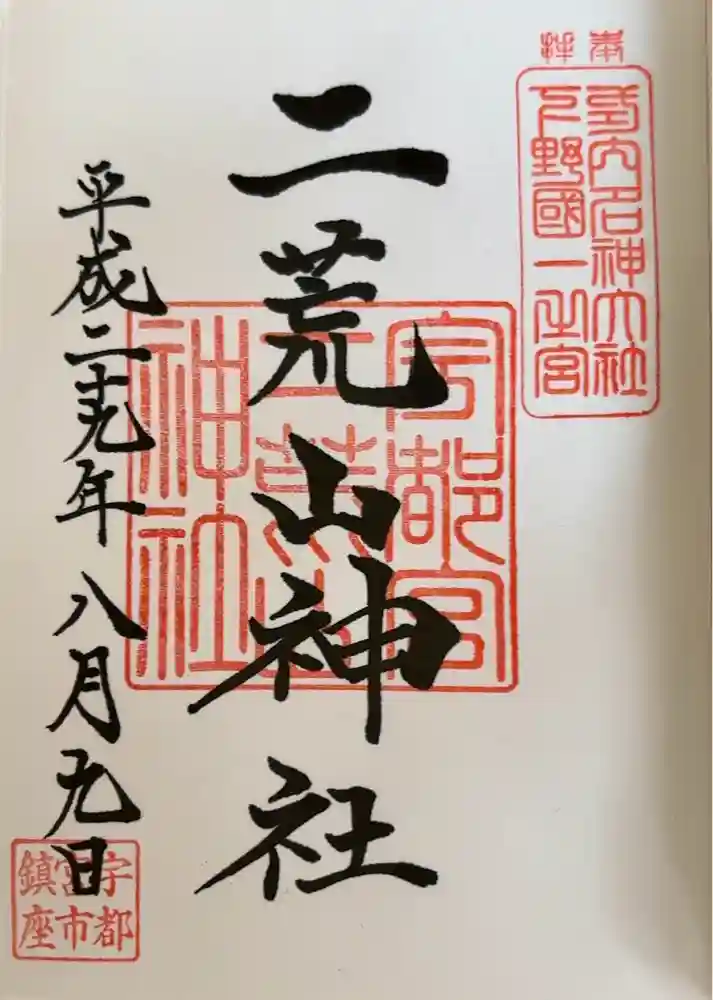 奉拝
式内名神大社
下野國一之宮
二荒山神社
宇都宮
二荒山
神社
平成二十九年八月九日
宇都
宮市
鎮座